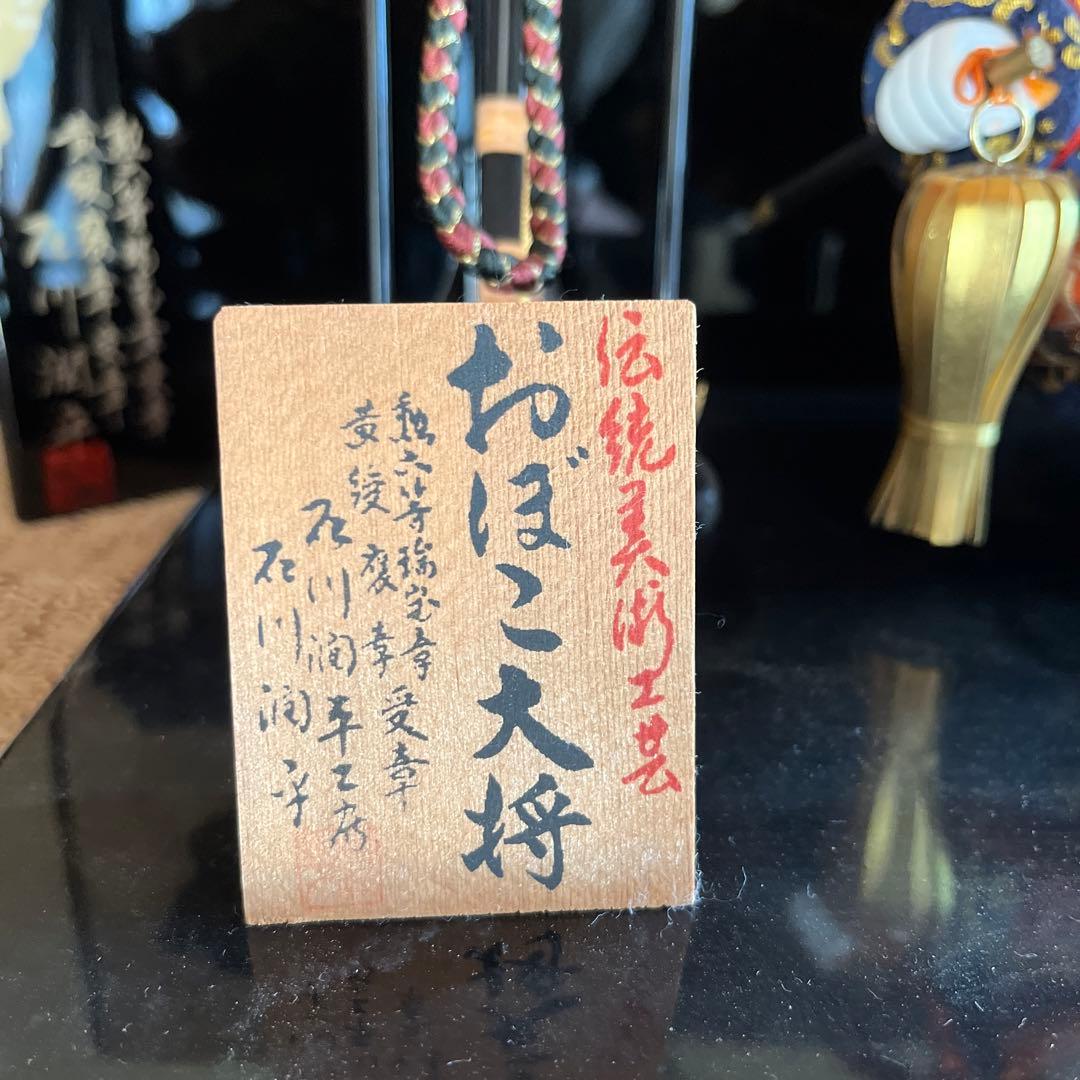 伝統美術工芸
おぼこ大将
勲六等瑞宝章
黄綬褒章受章
石川潤平工房
石川潤平